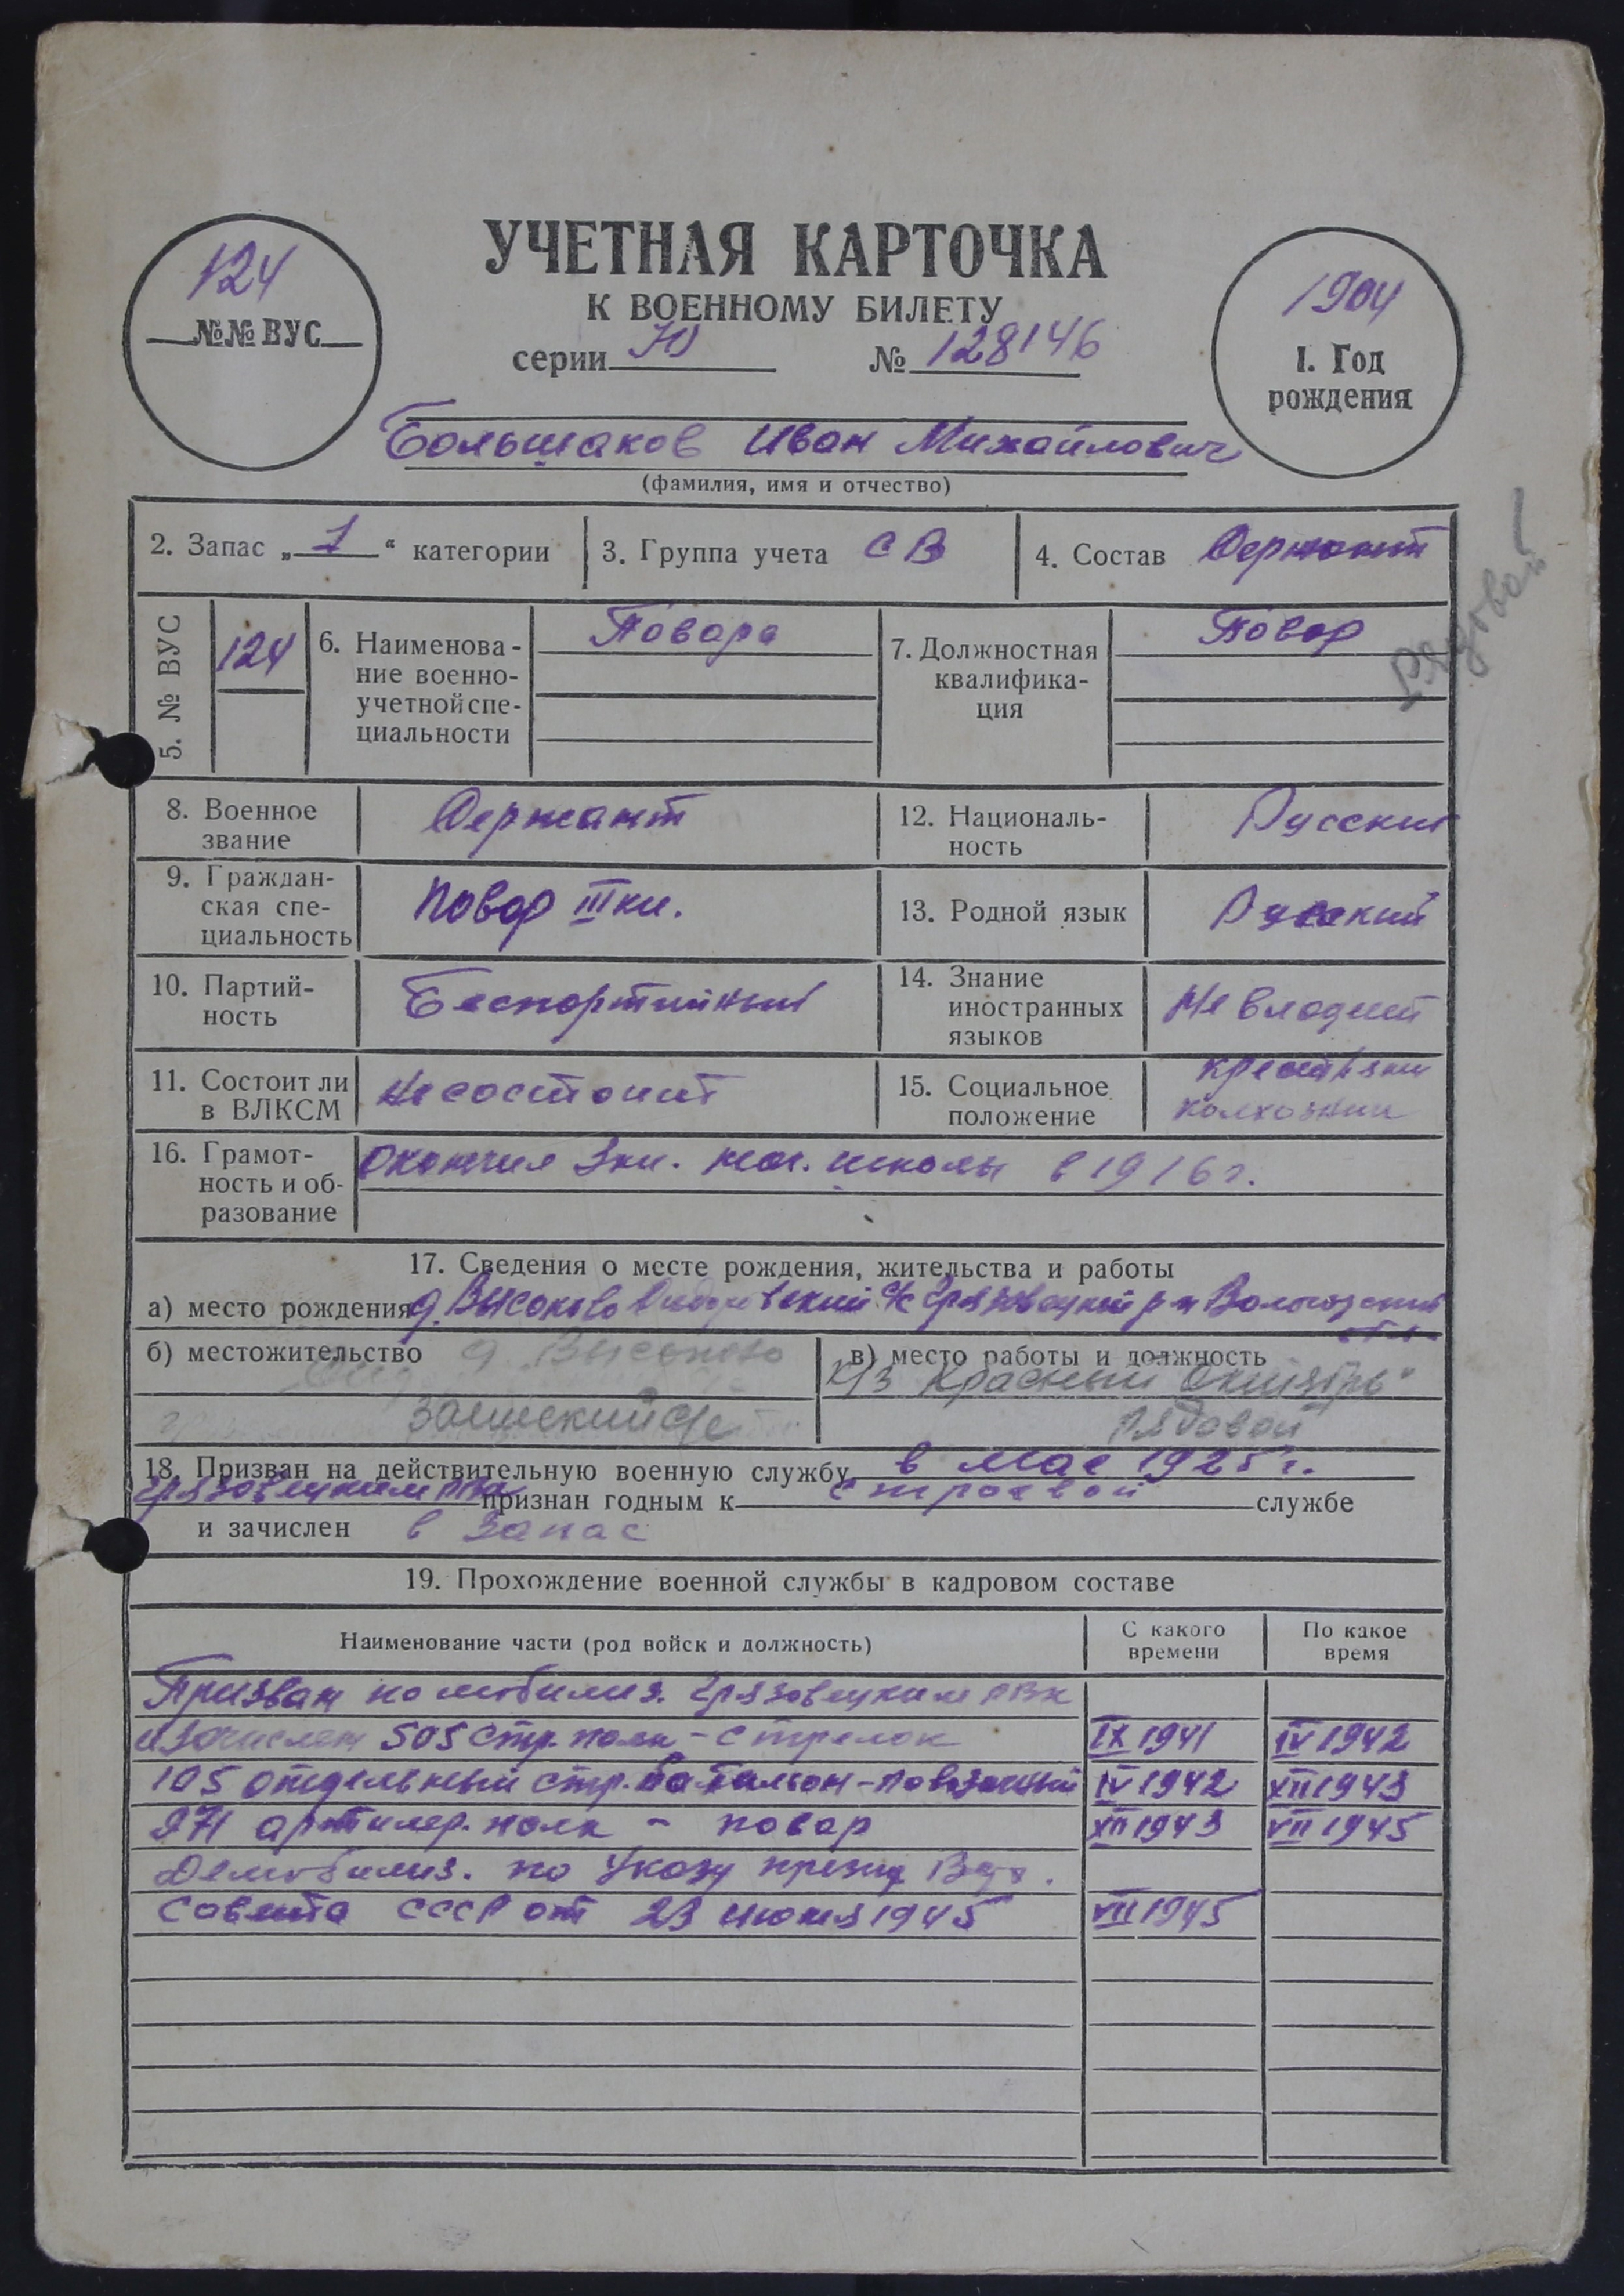 УЧЕТНАЯ КАРТОЧКА
К ВОЕННОМУ БИЛЕТУ
серии Ю № 128146
124
№№ ВУС
1904
1. Год
рождения
Большаков Иван Михайлович
(фамилия, имя и отчество)
2. Запас „1“ категории
3. Группа учета СВ
4. Состав Сержант
Рядовой
5. № ВУС 124
6. Наименова-
ние военно-
учетной спе-
циальности
Повара
7. Должностная
квалифика-
ция
Повар
8. Военное
звание
Сержант
12. Националь-
ность
Русский
9. Граждан-
ская спе-
циальность
Повар III кл.
13. Родной язык Русский
10. Партий-
ность
Беспартийный
14. Знание
иностранных
языков
Не владеет
11. Состоит ли
в ВЛКСМ
Не состоит
15. Социальное
положение
колхозник
16. Грамот-
ность и об-
разование
окончил 3 кл. нач. школы в 1916 г.
17. Сведения о месте рождения, жительства и работы
а) место рождения д. Высоково с/с Грязовецкий р-н Вологодский
обл.
б) местожительство д. Высоково
с/с
в) место работы и должность
к/з Красный Октябрь"
Рядовой
18. Призван на действительную военную службу в мае 1925 г.
Грязовецким РВК признан годным к строевой службе
и зачислен в запас
19. Прохождение военной службы в кадровом составе
Наименование части (род войск и должность)
С какого
времени
По какое
время
Призван по мобилиз. Грязовецким РВК
и зачислен 505 стр. полк - стрелок IX 1941 IV 1942
105 отдельный стр. батальон - повозочный IV 1942 XII 1943
971 артилер. полк - повар XII 1943 VII 1945
Демобилиз. по Указу презид. Верх.
Совета СССР от 23 июня 1945 VII 1945